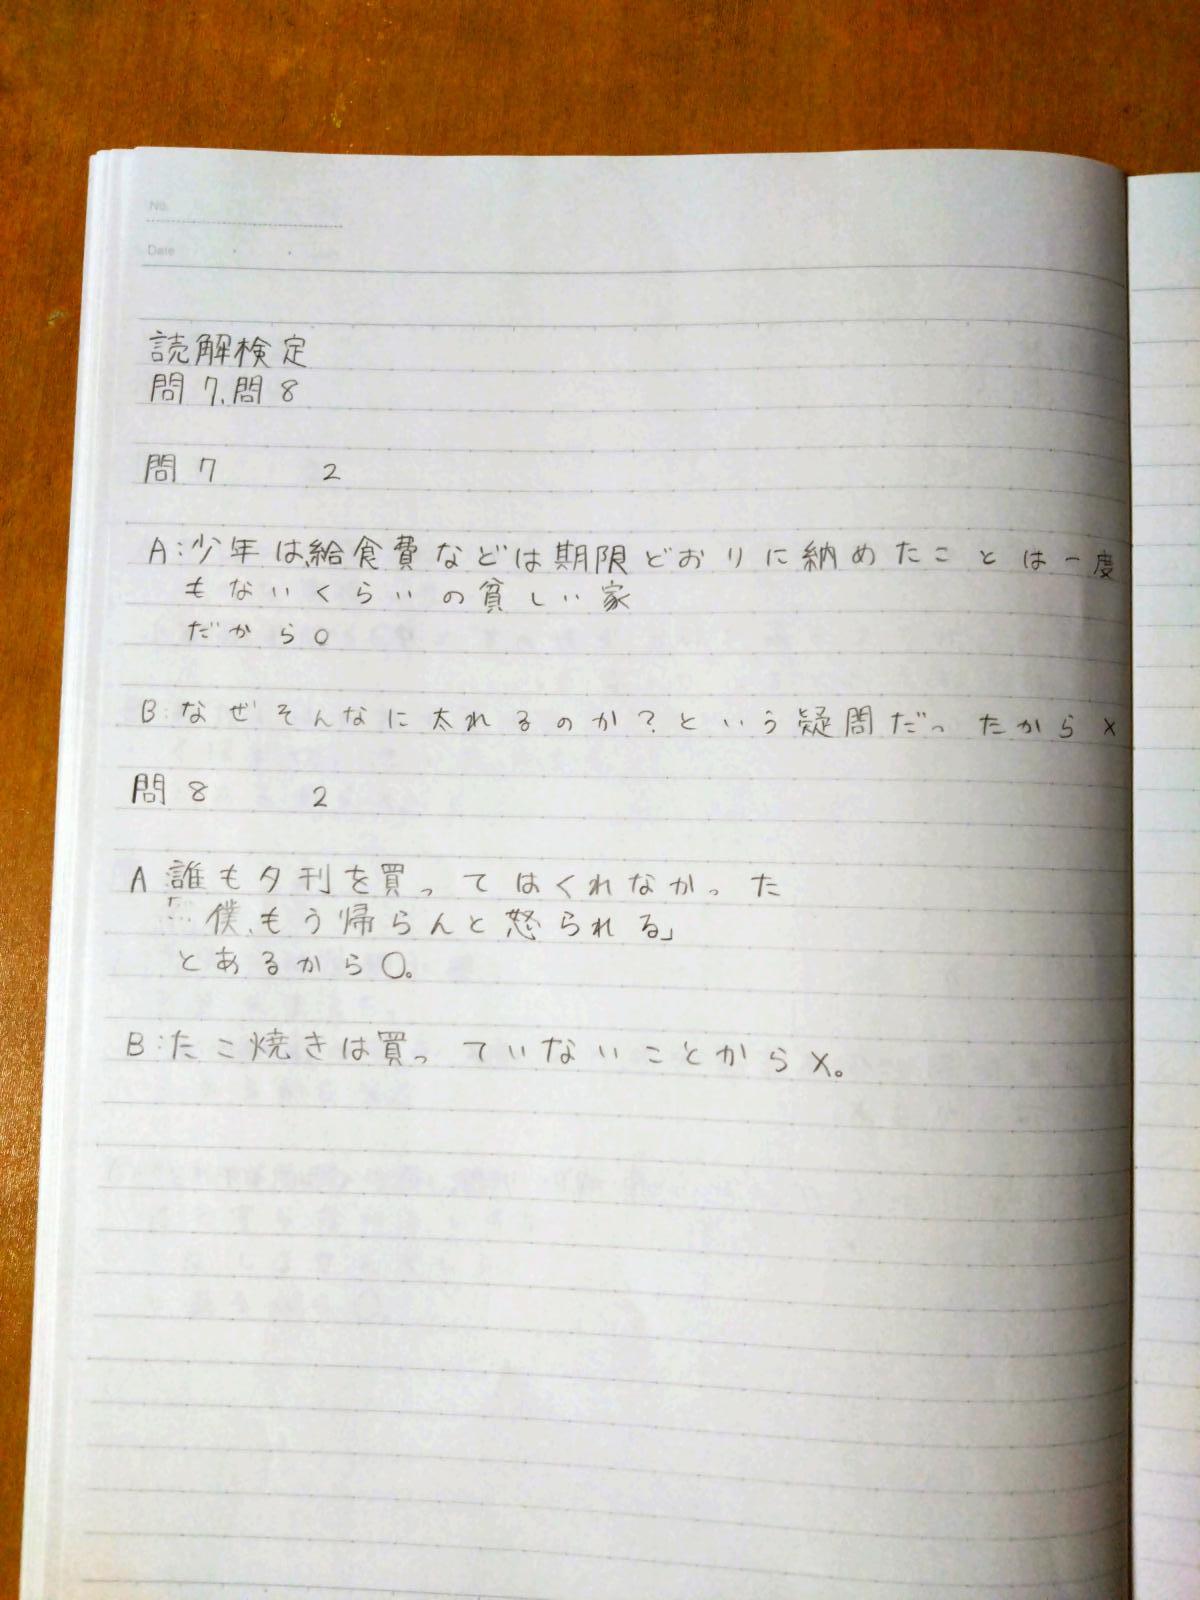 No.
Date
読解検定
問7、問8
問7 2
A:少年は、給食費などは期限どおりに納めたことは一度
もないくらいの貧しい家
だから○
B:なぜそんなに太れるのか?という疑問だったから×
問8 2
A 誰も夕刊を買ってはくれなかった
「僕、もう帰らんと怒られる」
とあるから○。
B:たこ焼きは買っていないことから×。